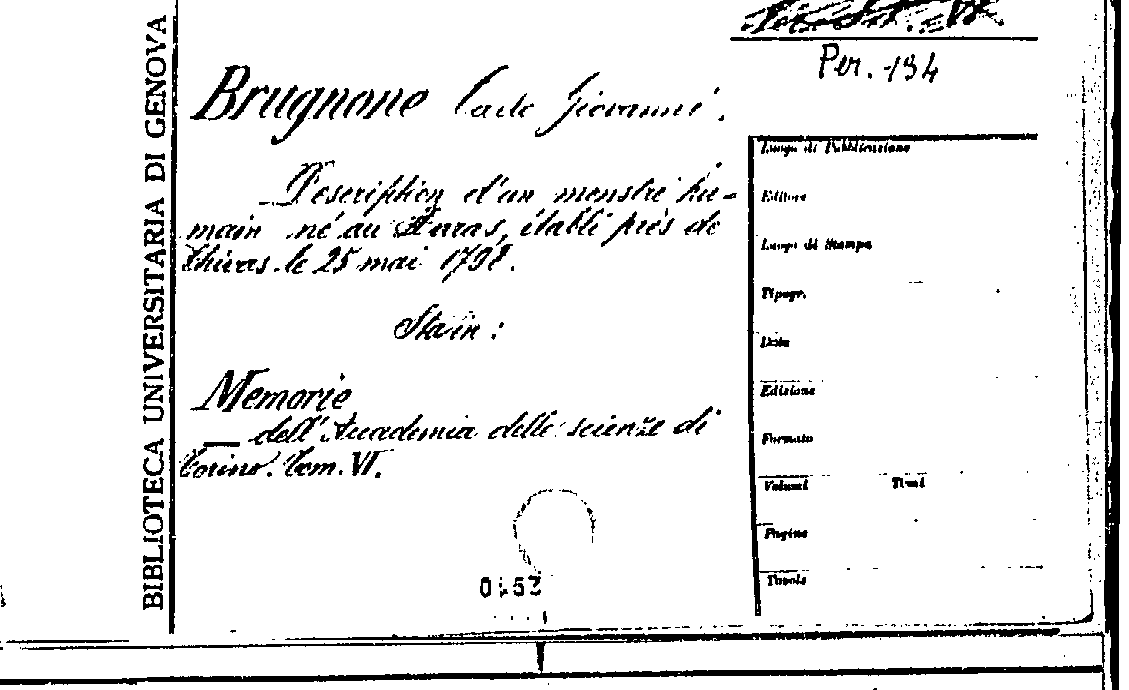 Per. 134
BIBLIOTECA UNIVERSITARIA DI GENOVA
Brugnone Carlo Giovanni.
Description d'un monstre hu-
main né au Haras, établi près de
Chivas le 25 mai 1792.
Sta in:
Memorie
— dell'Accademia delle scienze di
Torino. Tom. VI.
Luogo di Pubblicazione
Editore
Luogo di Stampa
Tipogr.
Data
Edizione
Formato
Volumi Tomi
Pagine
Tavole